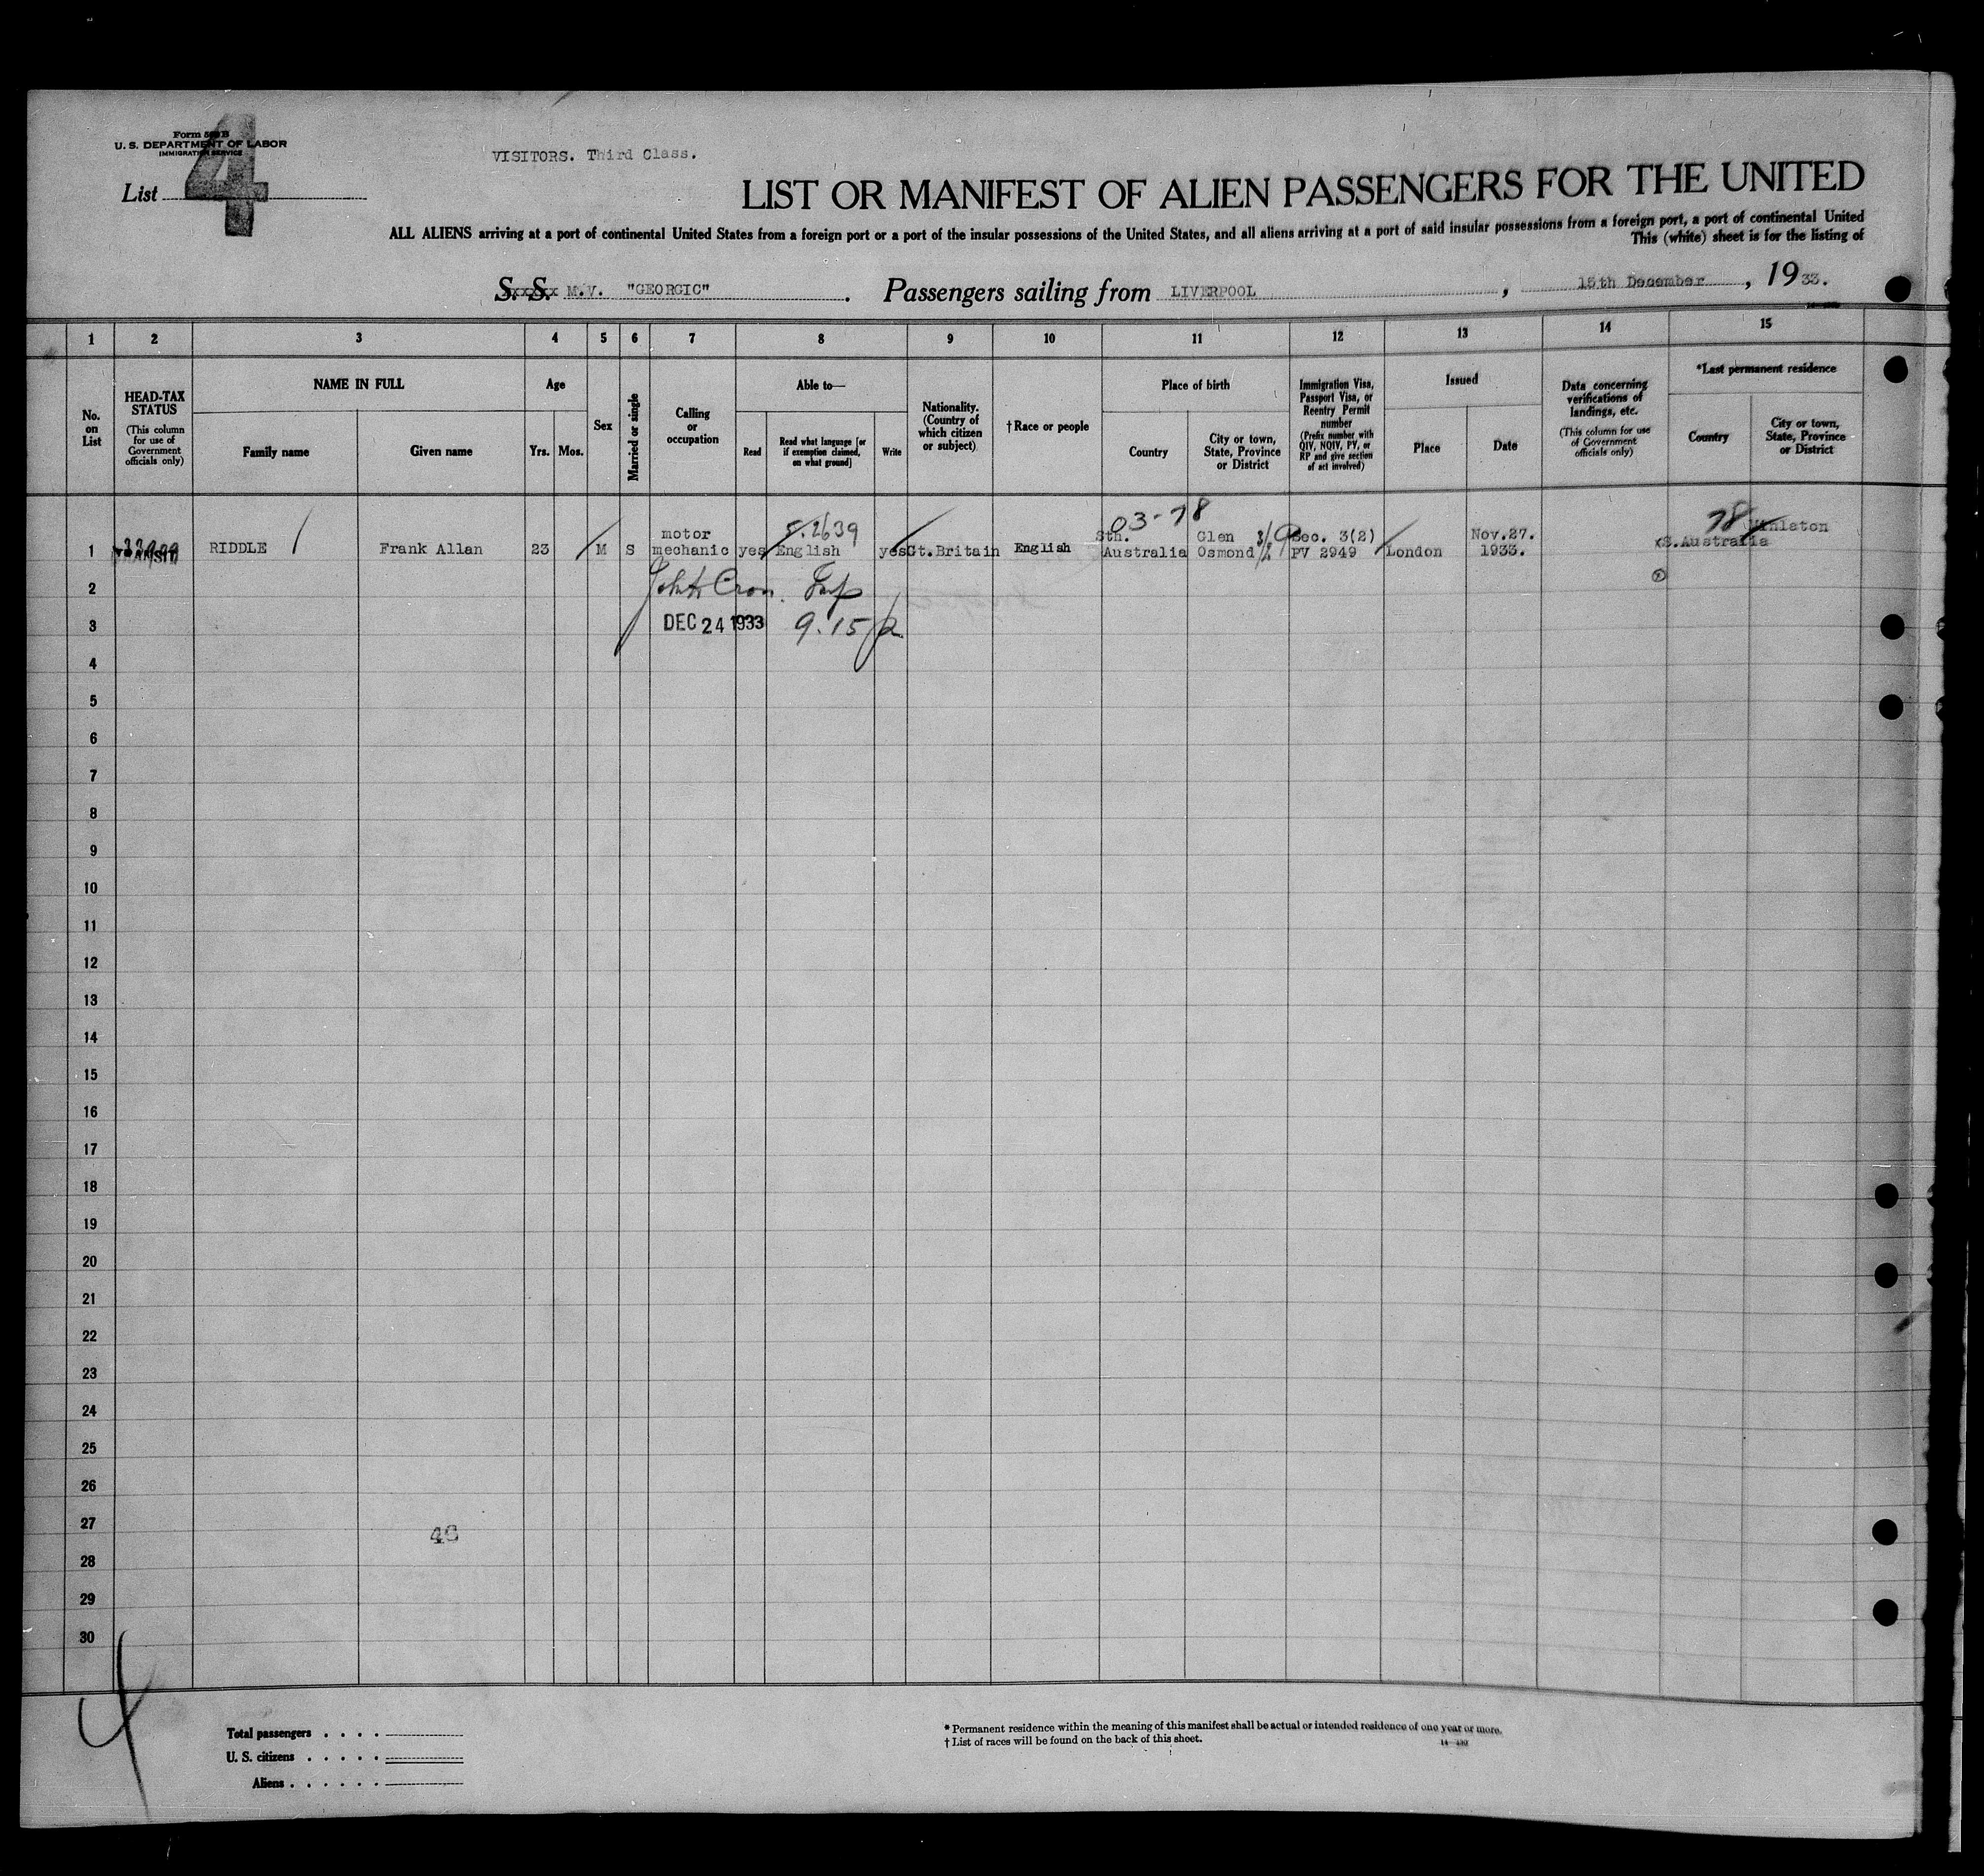 Form 500 B
U. S. DEPARTMENT OF LABOR
IMMIGRATION SERVICE
List 4
VISITORS. Third Class.
LIST OR MANIFEST OF ALIEN PASSENGERS FOR THE UNITED
ALL ALIENS arriving at a port of continental United States from a foreign port or a port of the insular possessions of the United States, and all aliens arriving at a port of said insular possessions from a foreign port, a port of continental United
This (white) sheet is for the listing of
S. S. M.V. "GEORGIC". Passengers sailing from LIVERPOOL, 15th December, 1933.
1 2 3 4 5 6 7 8 9 10 11 12 13 14 15
No. on List
HEAD-TAX STATUS
(This column for use of Government officials only)
NAME IN FULL
Family name
Given name
Age
Yrs.
Mos.
Sex
Married or single
Calling or occupation
Able to—
Read
Read what language [or if exemption claimed, on what ground]
Write
Nationality. (Country of which citizen or subject)
†Race or people
Place of birth
Country
City or town, State, Province or District
Immigration Visa, Passport Visa, or Reentry Permit number
(Prefix number with QIV, NQIV, PV, or RP and give section of act involved)
Issued
Place
Date
Data concerning verifications of landings, etc.
(This column for use of Government officials only)
*Last permanent residence
Country
City or town, State, Province or District
03-78
78
5.2639
1 TRANSIT RIDDLE Frank Allan 23 M S motor mechanic yes English yes Gt.Britain English Sth. Australia Glen Osmond Sec. 3(2) PV 2949 London Nov.27. 1933. xS.Australia Minlaton
2
3 DEC 24 1933 9.15
4
5
6
7
8
9
10
11
12
13
14
15
16
17
18
19
20
21
22
23
24
25
26
27
28
29
30
4
Total passengers . . . .
U. S. citizens . . . . .
Aliens . . . . . .
* Permanent residence within the meaning of this manifest shall be actual or intended residence of one year or more.
† List of races will be found on the back of this sheet.